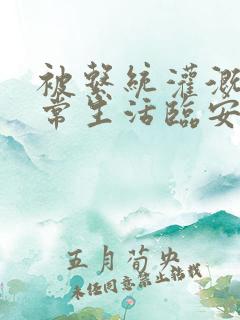 被繫統灌溉
常生活臨安
五月荀央
未经同意禁止转载